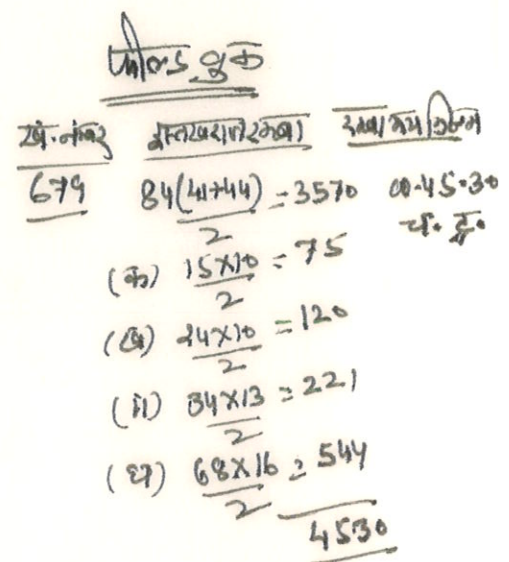 फील्ड बुक
खं. नंबर दस्तखराजे रकबा रकबा मय किस्म
679 84(41+44)/2 = 3570 00.45.30
चं. दू.
(क) 15x10/2 = 75
(ख) 24x10/2 = 120
(ग) 34x13/2 = 221
(घ) 68x16/2 = 544
4530